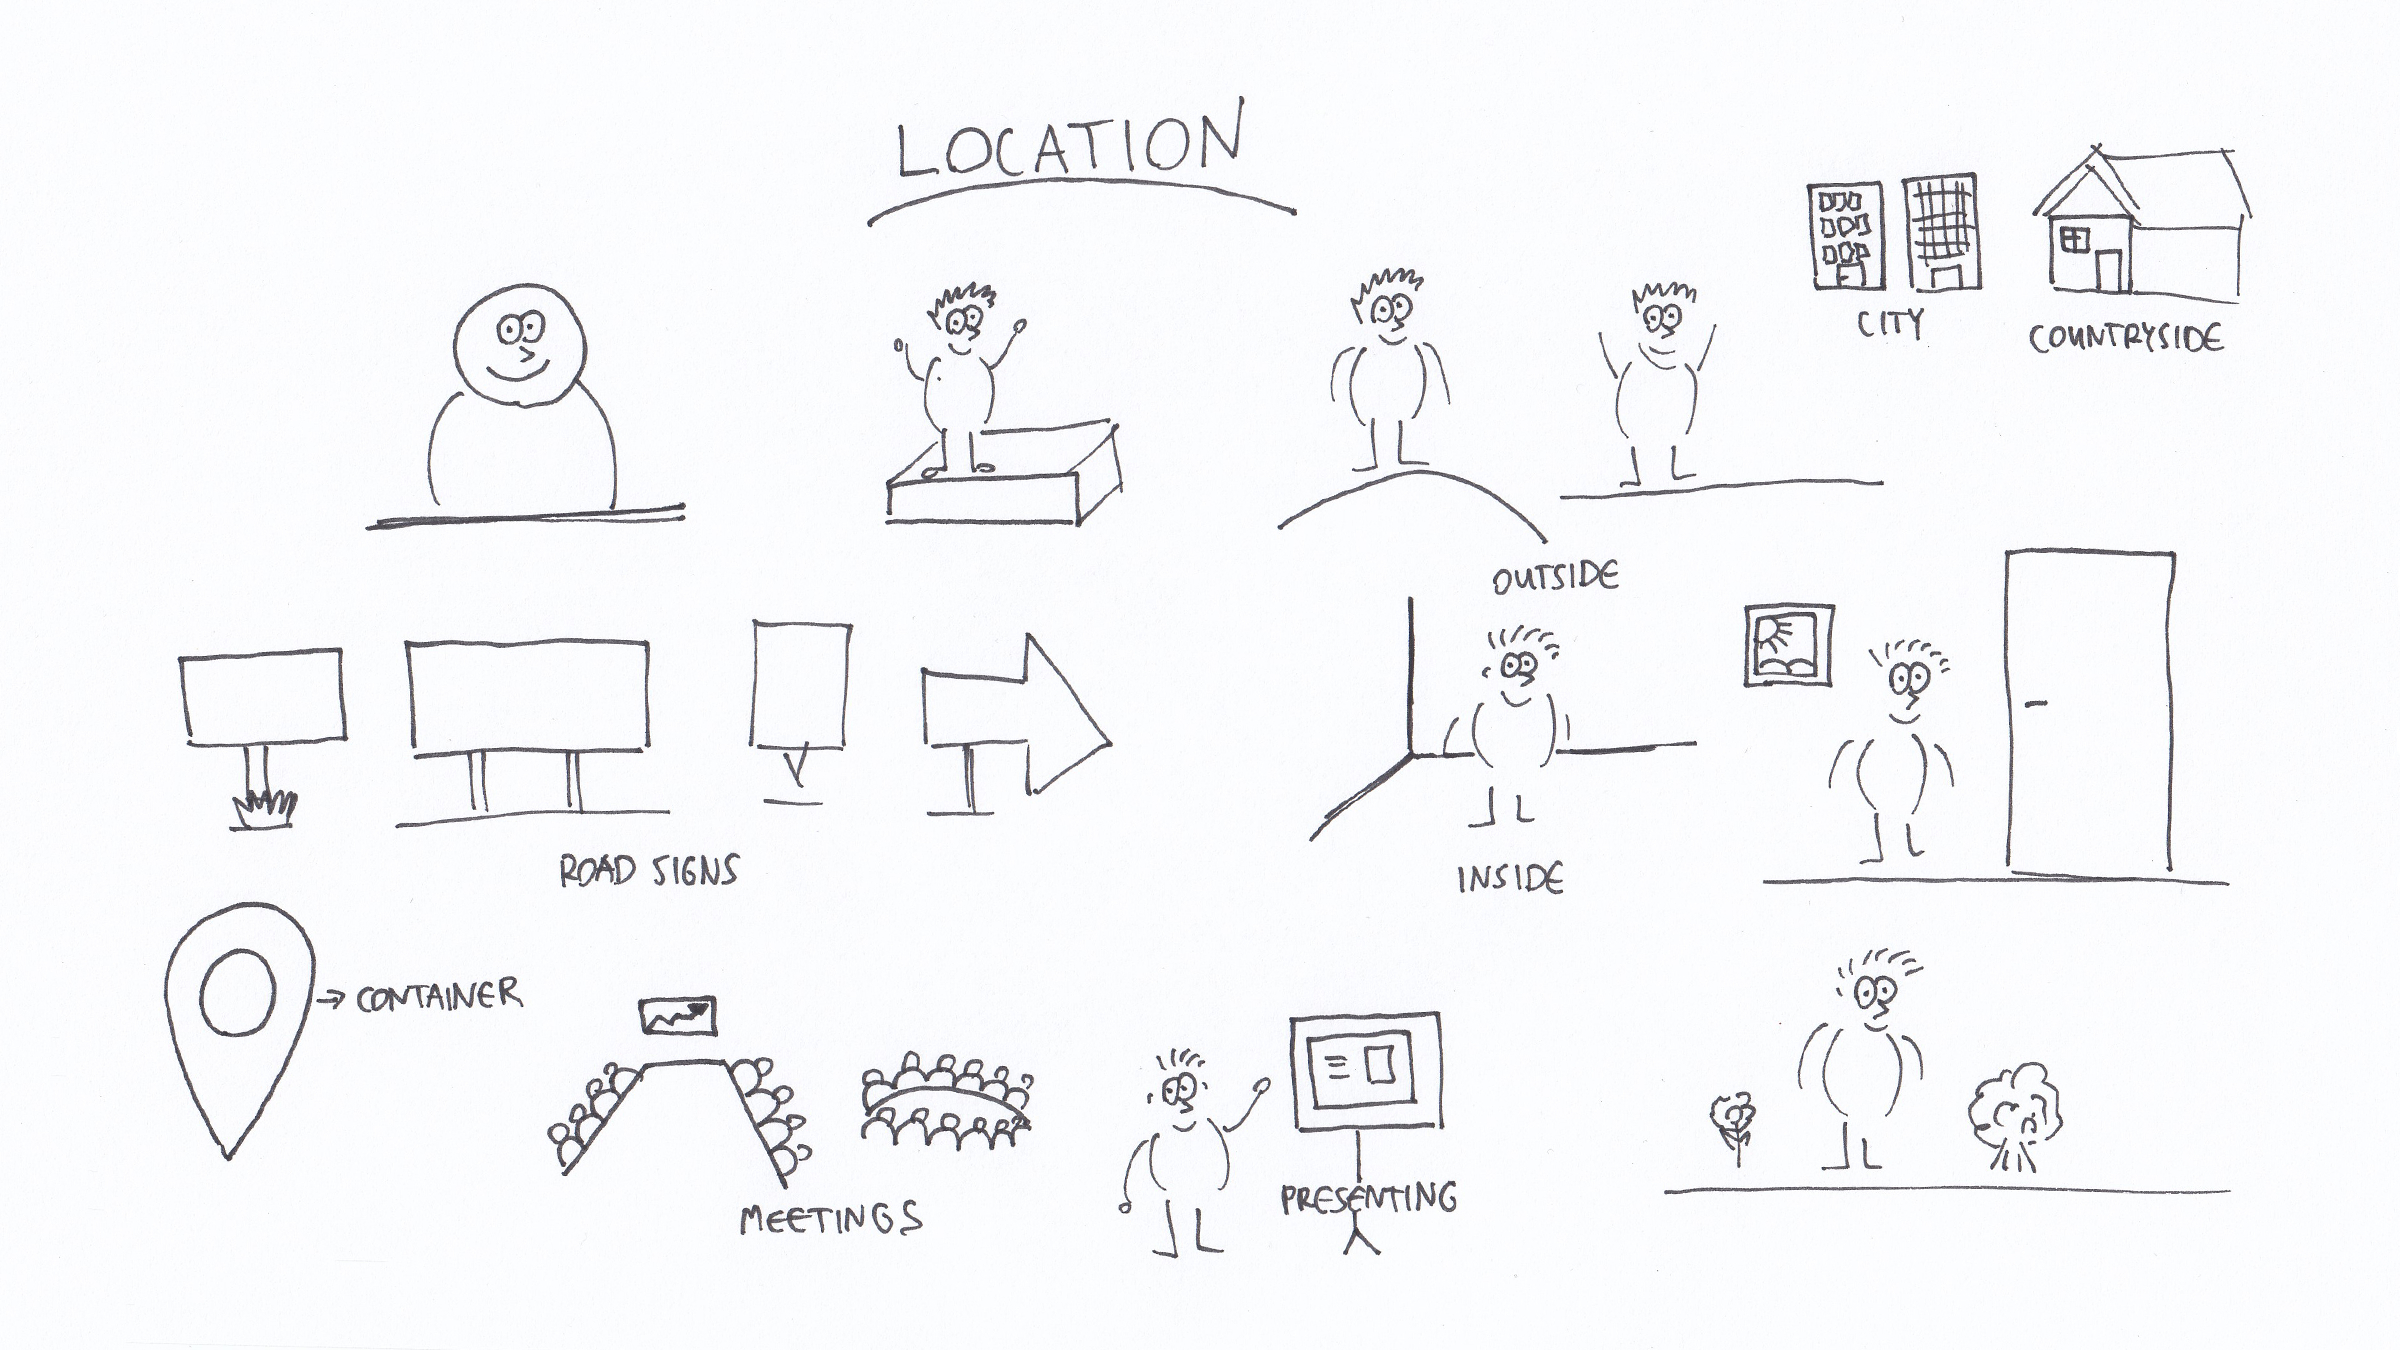 LOCATION
CITY
COUNTRYSIDE
OUTSIDE
ROAD SIGNS
INSIDE
→ CONTAINER
MEETINGS
PRESENTING